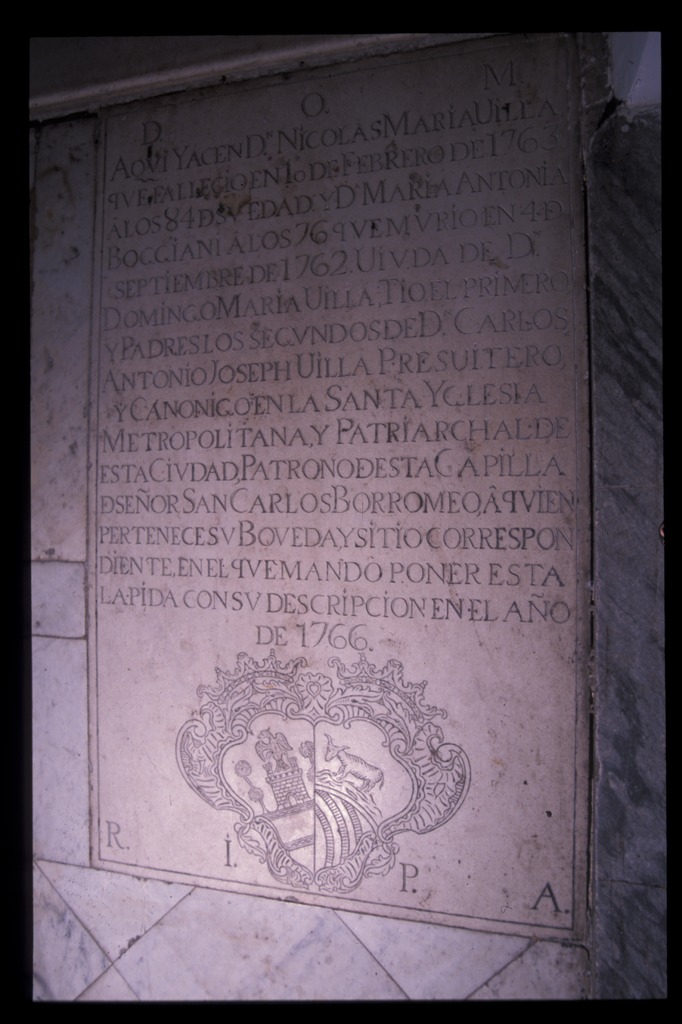 D. O. M
AQUI YACEN D.N NICOLAS MARIA UILLA
QVE FALLECIO EN 10 DE FEBRERO DE 1763
A LOS 84 D SV EDAD, Y D.A MARIA ANTONIA
BOCCIANI A LOS 76 QVE MVRIO EN 4 D
SEPTIEMBRE DE 1762. UIVDA DE D.N
DOMINGO MARIA UILLA, TIO EL PRIMERO
Y PADRES LOS SEGVNDOS DE D.N CARLOS
ANTONIO JOSEPH UILLA PRESUITERO,
Y CANONIGO EN LA SANTA YGLESIA
METROPOLITANA, Y PATRIARCHAL DE
ESTA CIVDAD, PATRONO DESTA CAPILLA
D SEÑOR SAN CARLOS BORROMEO, Â QVIEN
PERTENECE SV BOVEDA, Y SITIO CORRESPON
DIENTE, EN EL QVE MANDÒ PONER ESTA
LAPIDA CON SV DESCRIPCION EN EL AÑO
DE 1766.
R. I. P. A.